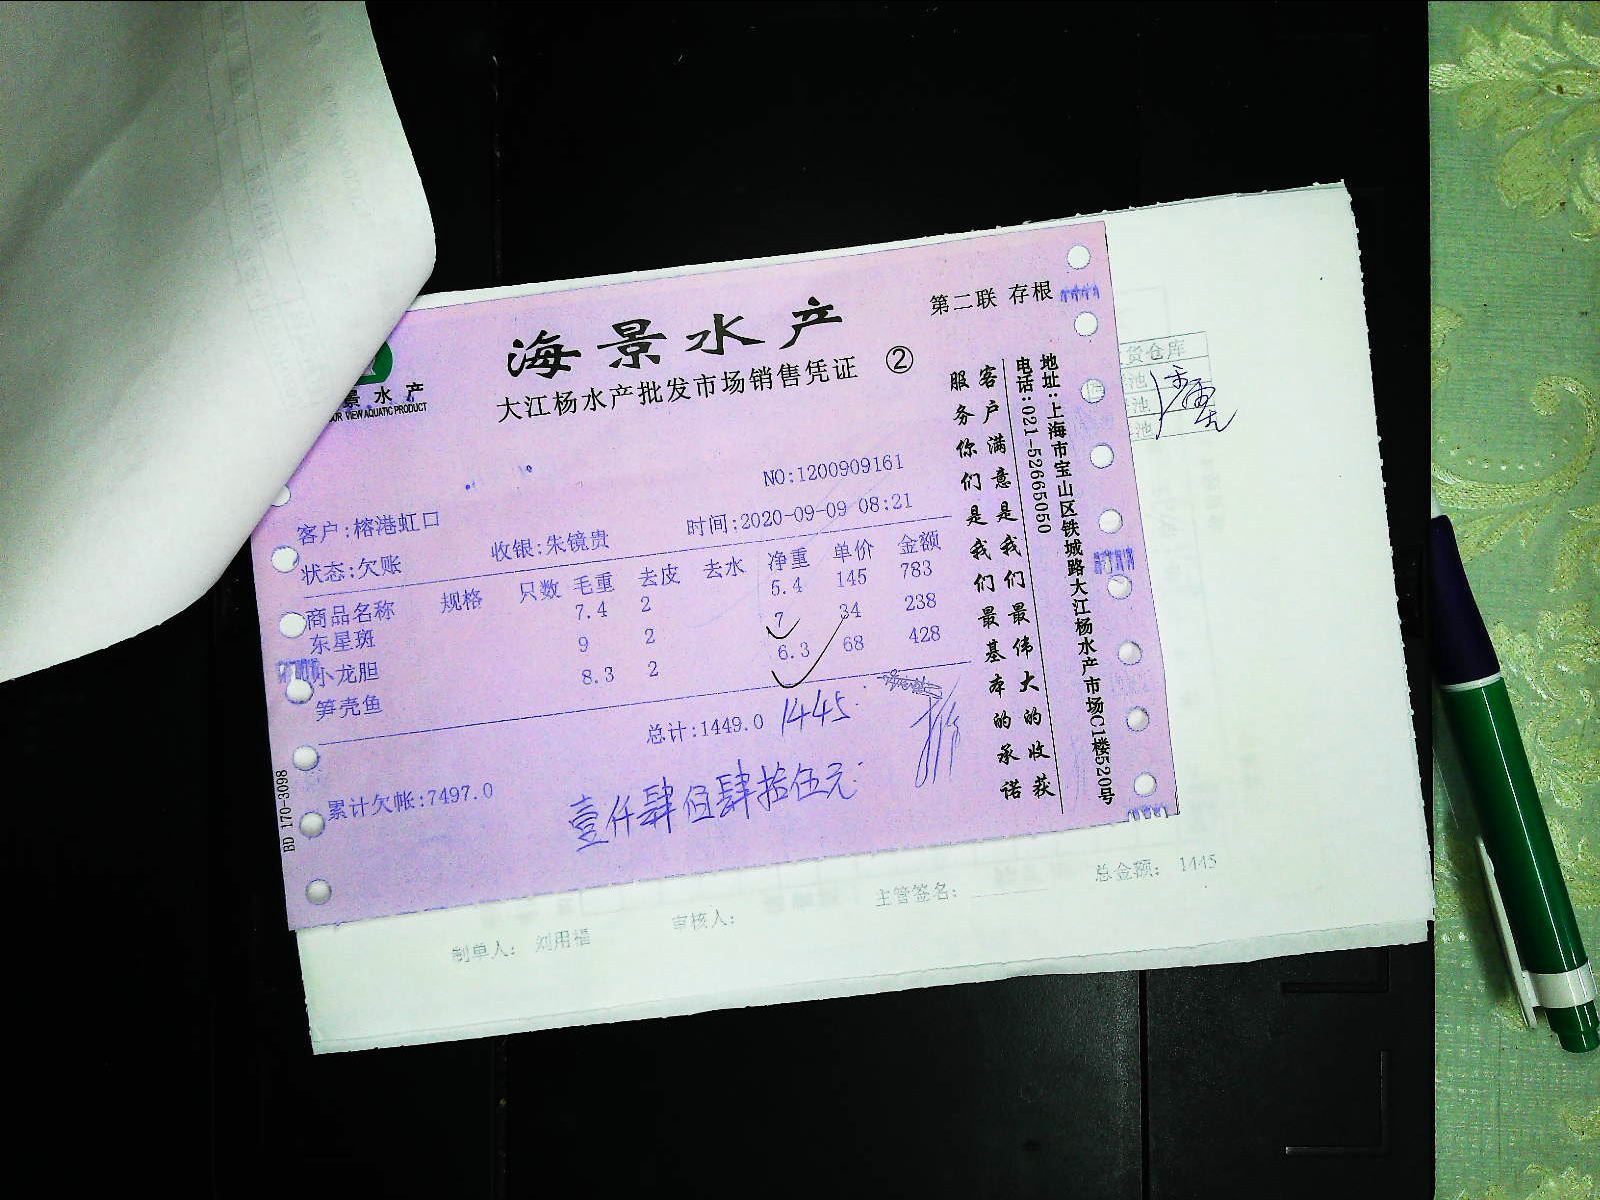 第二联 存根
海景水产
大江杨水产批发市场销售凭证 ②
景水产
VIEW AQUATIC PRODUCT
NO:1200909161
客户:榕港虹口
收银:朱镜贵
时间:2020-09-09 08:21
状态:欠账
商品名称 规格 只数 毛重 去皮 去水 净重 单价 金额
东星斑 7.4 2 5.4 145 783
小龙胆 9 2 7 34 238
笋壳鱼 8.3 2 6.3 68 428
总计:1449.0 1445
累计欠帐:7497.0
壹仟肆佰肆拾伍元
BD 170-3098
地址:上海市宝山区铁城路大江杨水产市场C1楼520号
电话:021-52665050
客户满意是我们最伟大的收获
服务你们是我们最基本的承诺
货仓库
池
池
池
制单人: 刘用福
审核人:
主管签名:
总金额: 1445